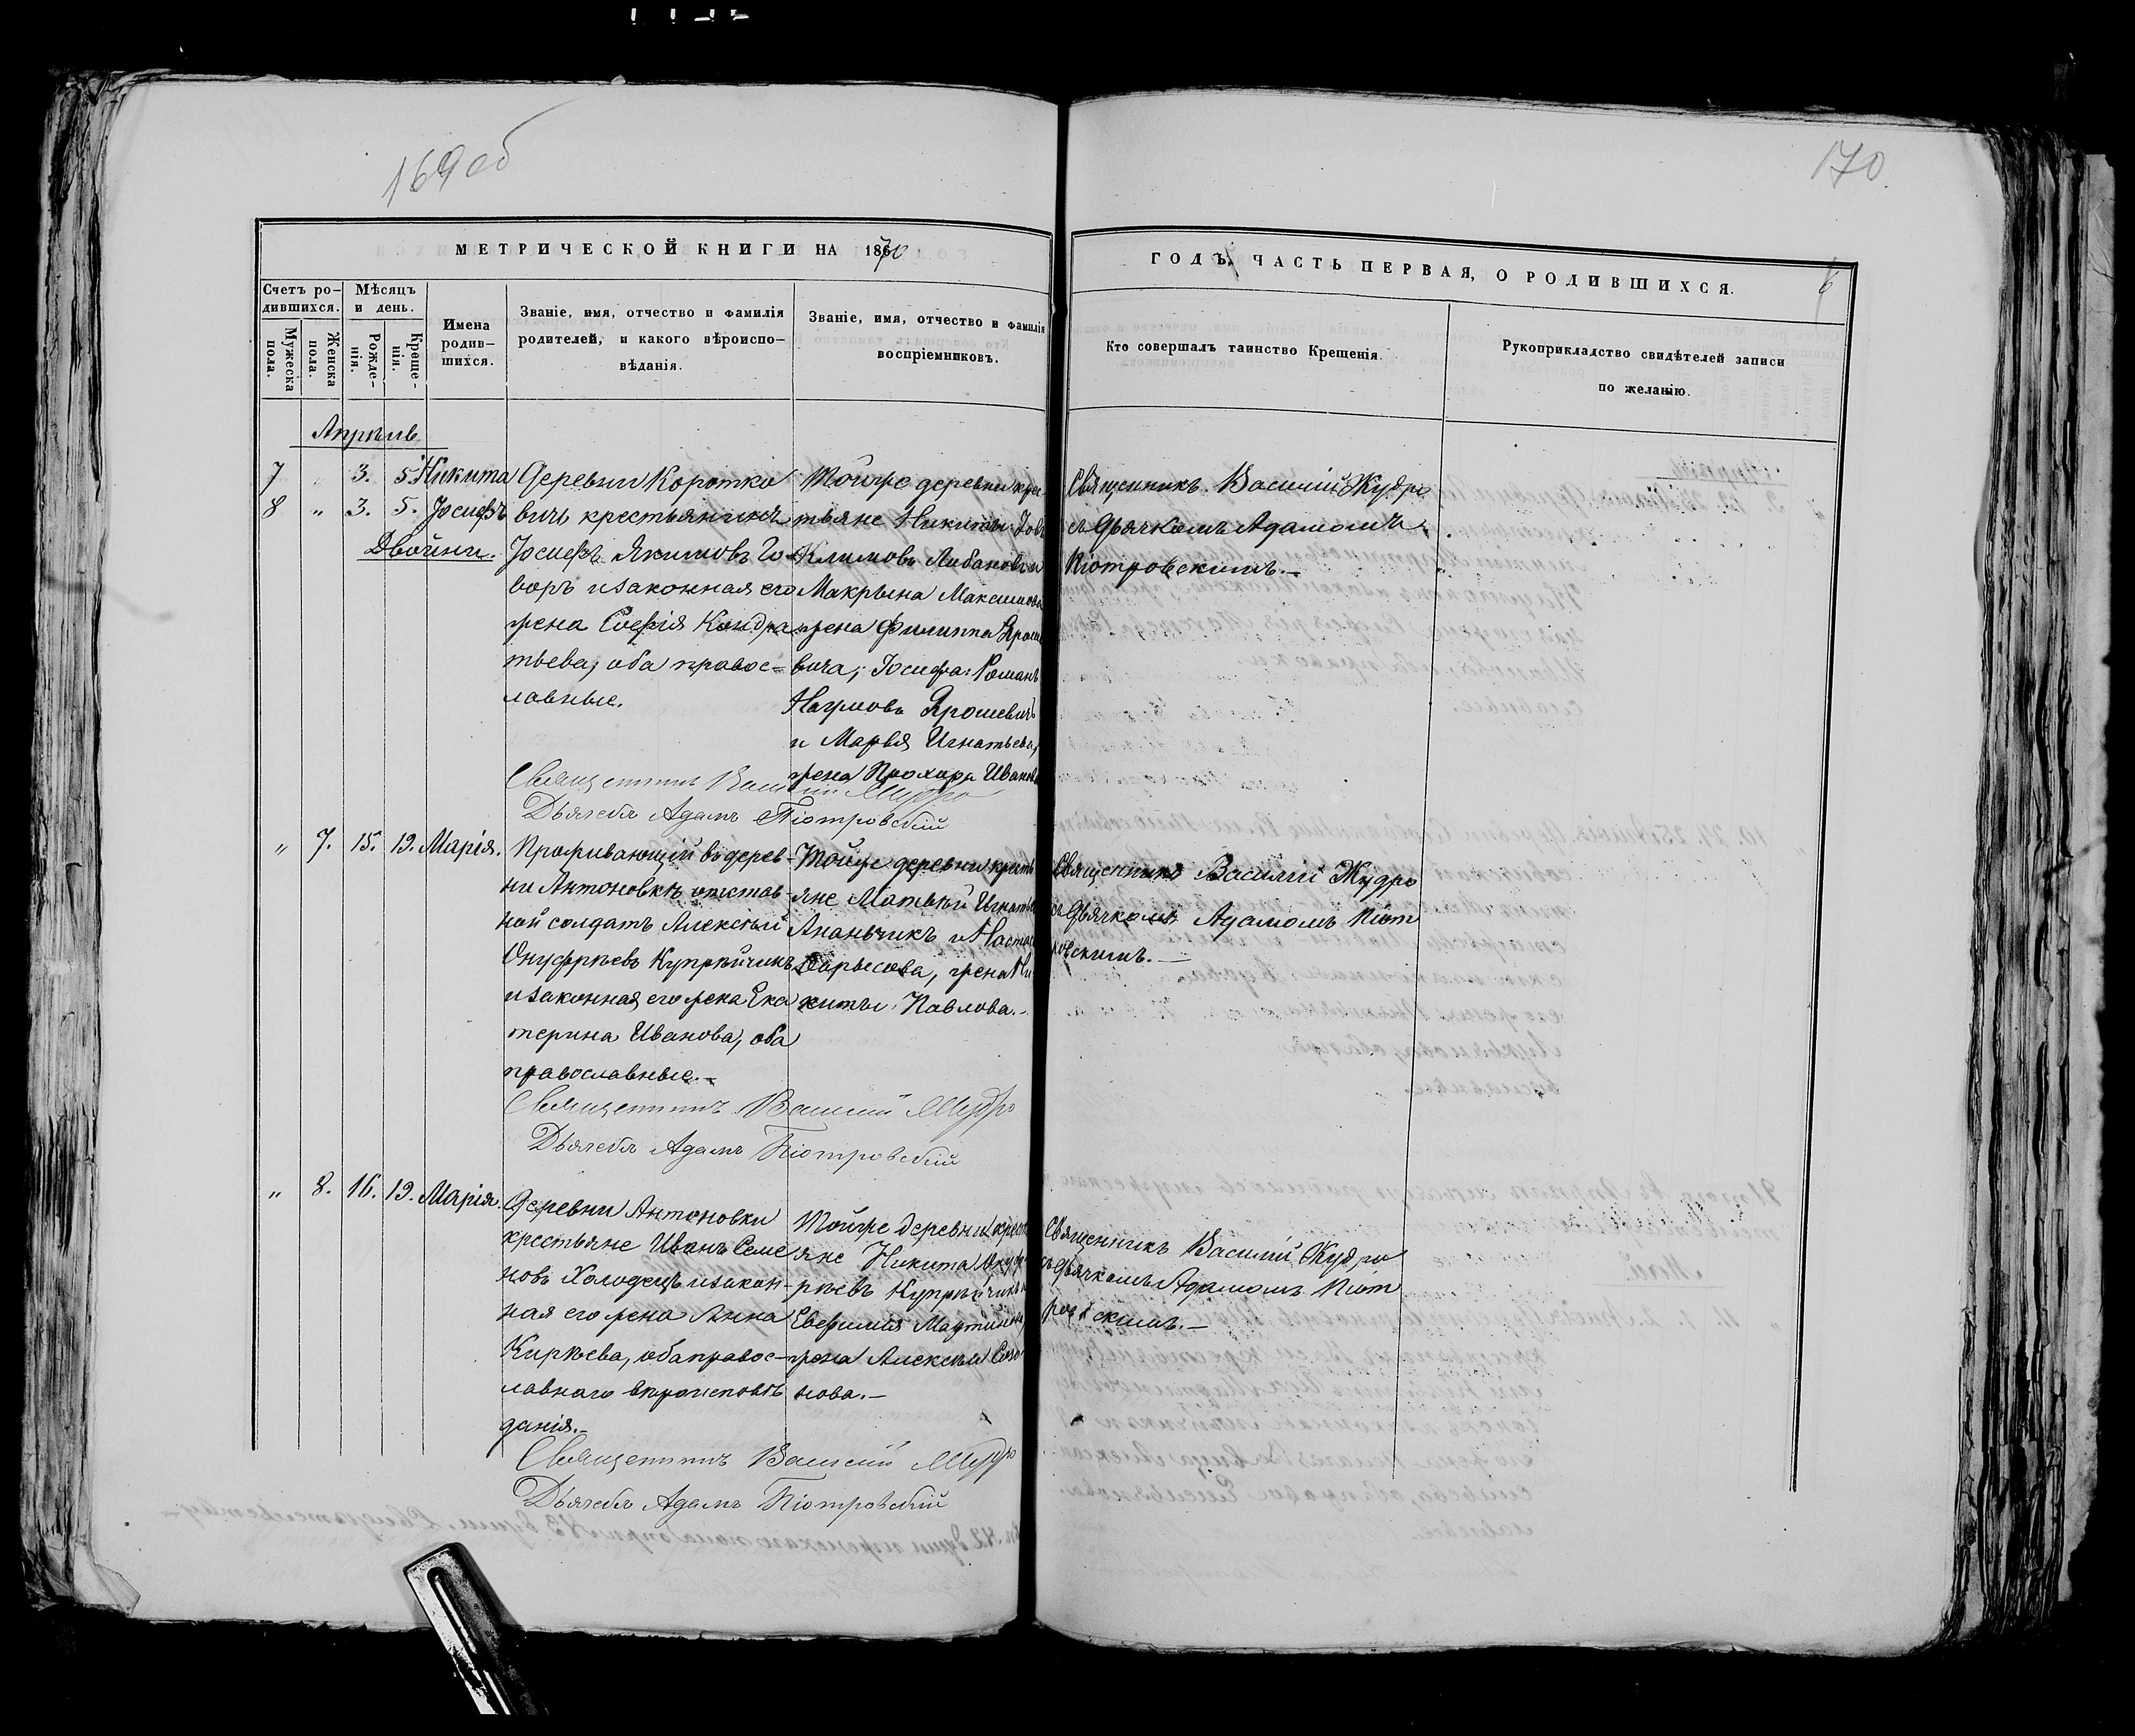 169 об
170
МЕТРИЧЕСКОЙ КНИГИ НА 1870
ГОДЪ, ЧАСТЬ ПЕРВАЯ, О РОДИВШИХСЯ.
6
Счетъ ро-
дившихся.
Мужеска пола.
Женска пола.
Мѣсяцъ
и день.
Рожде-
нія.
Креще-
нія.
Имена
родив-
шихся.
Званіе, имя, отчество и фамилія
родителей, и какого вѣроиспо-
вѣданія.
Званіе, имя, отчество и фамилія
воспріемниковъ.
Кто совершалъ таинство Крещенія.
Рукоприкладство свидѣтелей записи
по желанію.
Апрѣль
7 " 3. 5. Никита
8 " 3. 5. Іосифъ
Двойни.
Деревни Коротко
вичъ крестьянинъ
Іосифъ Якимовъ Го-
воръ и законная его
жена Софія Кондра
тьева, оба правос-
лавные.
Тойже деревни крес
тьяне Никиты:
Климовъ и
Макрына Максимова
жена Филиппа Яроше
вича; Іосифа: Романъ
Наумовъ Ярошевичъ
и Марья Игнатьева,
жена Прохора Иванова
Священникъ Василій Жудро
съ Дьячкомъ Адамомъ
Піотровскимъ.—
Священникъ Василій Жудро
Дьячекъ Адамъ Піотровскій
" 7. 15. 19. Марія.
Проживающій въ дерев-
ни Антоновкѣ отстав-
ной солдатъ Алексѣй
Онуфріевъ Купрѣйчикъ
и законная его жена Ека
терина Иванова, оба
православные.—
Тойже деревни крестья
яне Матвѣй Игнатьев
Ананьчикъ и Настас
Борысова, жена Ни
киты Павлова.—
Священникъ Василій Жудро
съ Дьячкомъ Адамомъ Піот
ровскимъ.—
Священникъ Василій Жудро
Дьячекъ Адамъ Піотровскій
" 8. 16. 19. Марія.
Деревни Антоновки
крестьяне Иванъ Семе
новъ Холодецъ и закон-
ная его жена Анна
Кирѣева, оба правос-
лавнаго вѣроисповѣ
данія.—
Тойже деревни крест
яне Никита Онуф
ріевъ Купрѣйчикъ и
Евфимія Мартинова,
жена Алексѣя Семе
нова.—
Священникъ Василій Жудро
съ Дьячкомъ Адамомъ Піот
ровскимъ.—
Священникъ Василій Жудро
Дьячекъ Адамъ Піотровскій